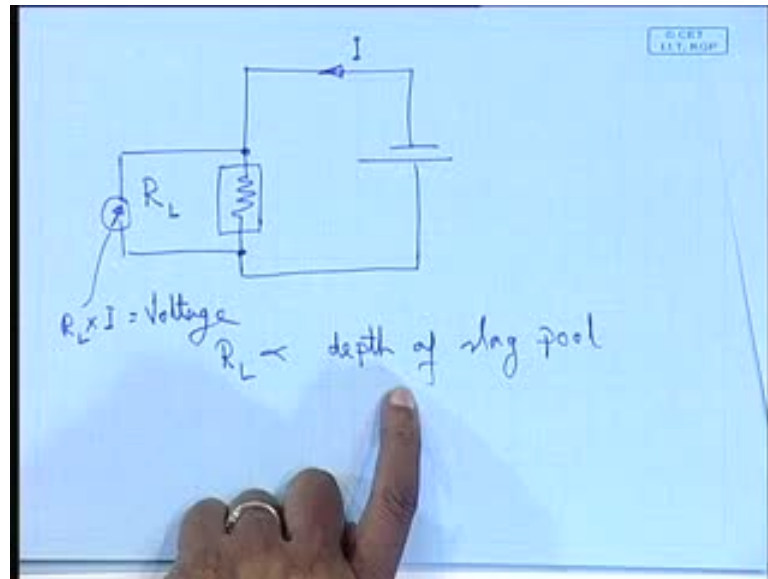 I
© CET
I.I.T. KGP
R_L
R_L × I = Voltage
R_L ∝ depth of slag pool